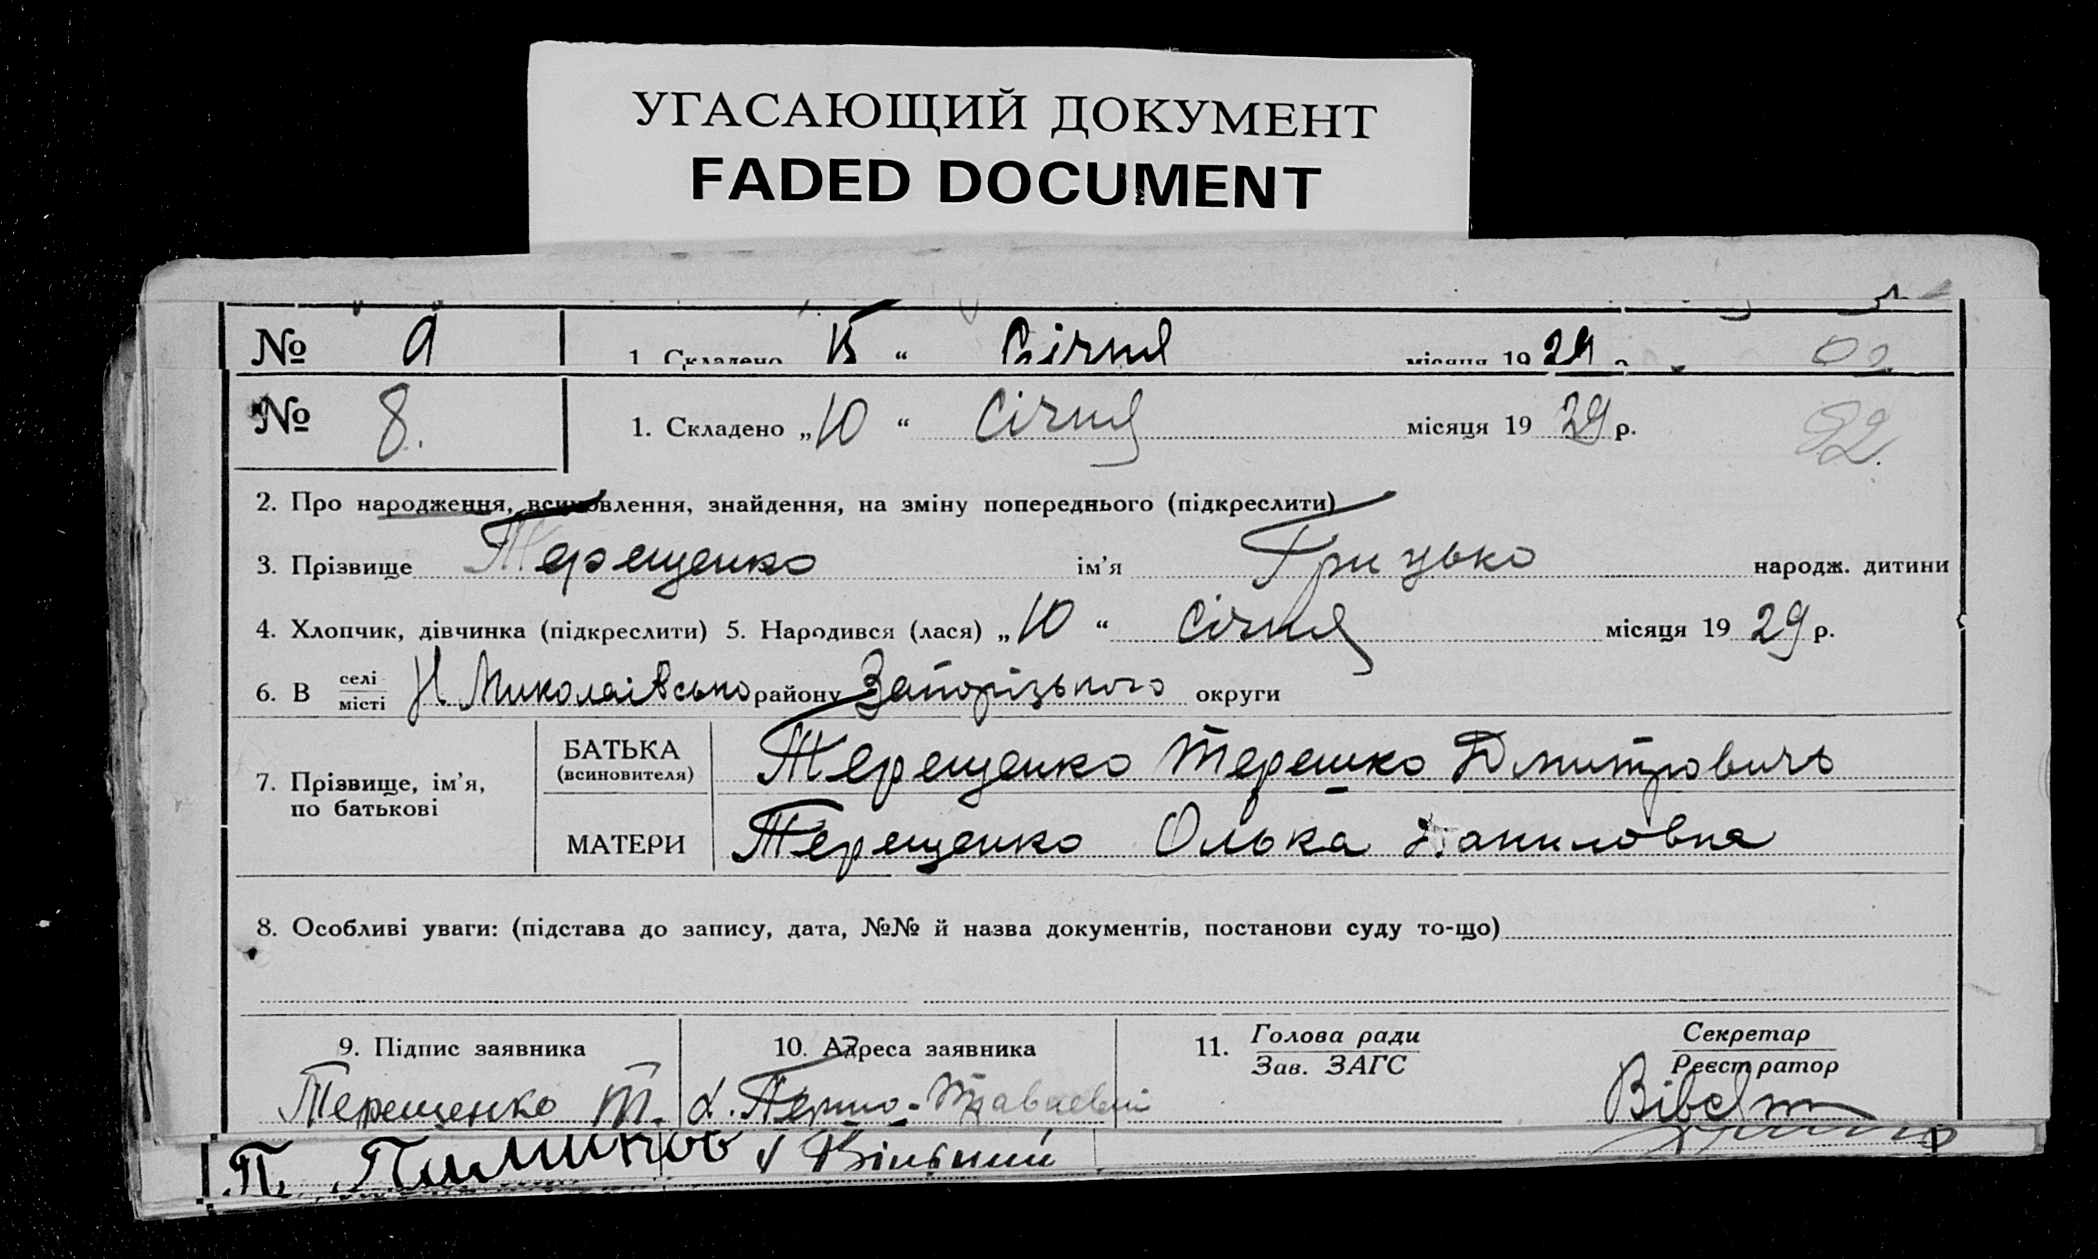 УГАСАЮЩИЙ ДОКУМЕНТ
FADED DOCUMENT
№ 1. Складено 15 “ Січня місяця 19 29 р.
№ 8. 1. Складено „ 10 “ Січня місяця 19 29 р. 92.
2. Про народження, всиновлення, знайдення, на зміну попереднього (підкреслити)
3. Прізвище Терещенко ім’я Грицько народж. дитини
4. Хлопчик, дівчинка (підкреслити) 5. Народився (лася) „ 10 “ січня місяця 19 29 р.
6. В селі місті Н Миколаівсько району Запорізького округи
7. Прізвище, ім’я, по батькові
БАТЬКА (всиновителя) Терещенко Терешко Дмитровичь
МАТЕРИ Терещенко Олька Даниловна
8. Особливі уваги: (підстава до запису, дата, №№ й назва документів, постанови суду то-що)
9. Підпис заявника 10. Адреса заявника 11. Голова ради Зав. ЗАГС Секретар Реєстратор
Терещенко Т. х. Перто-
П.